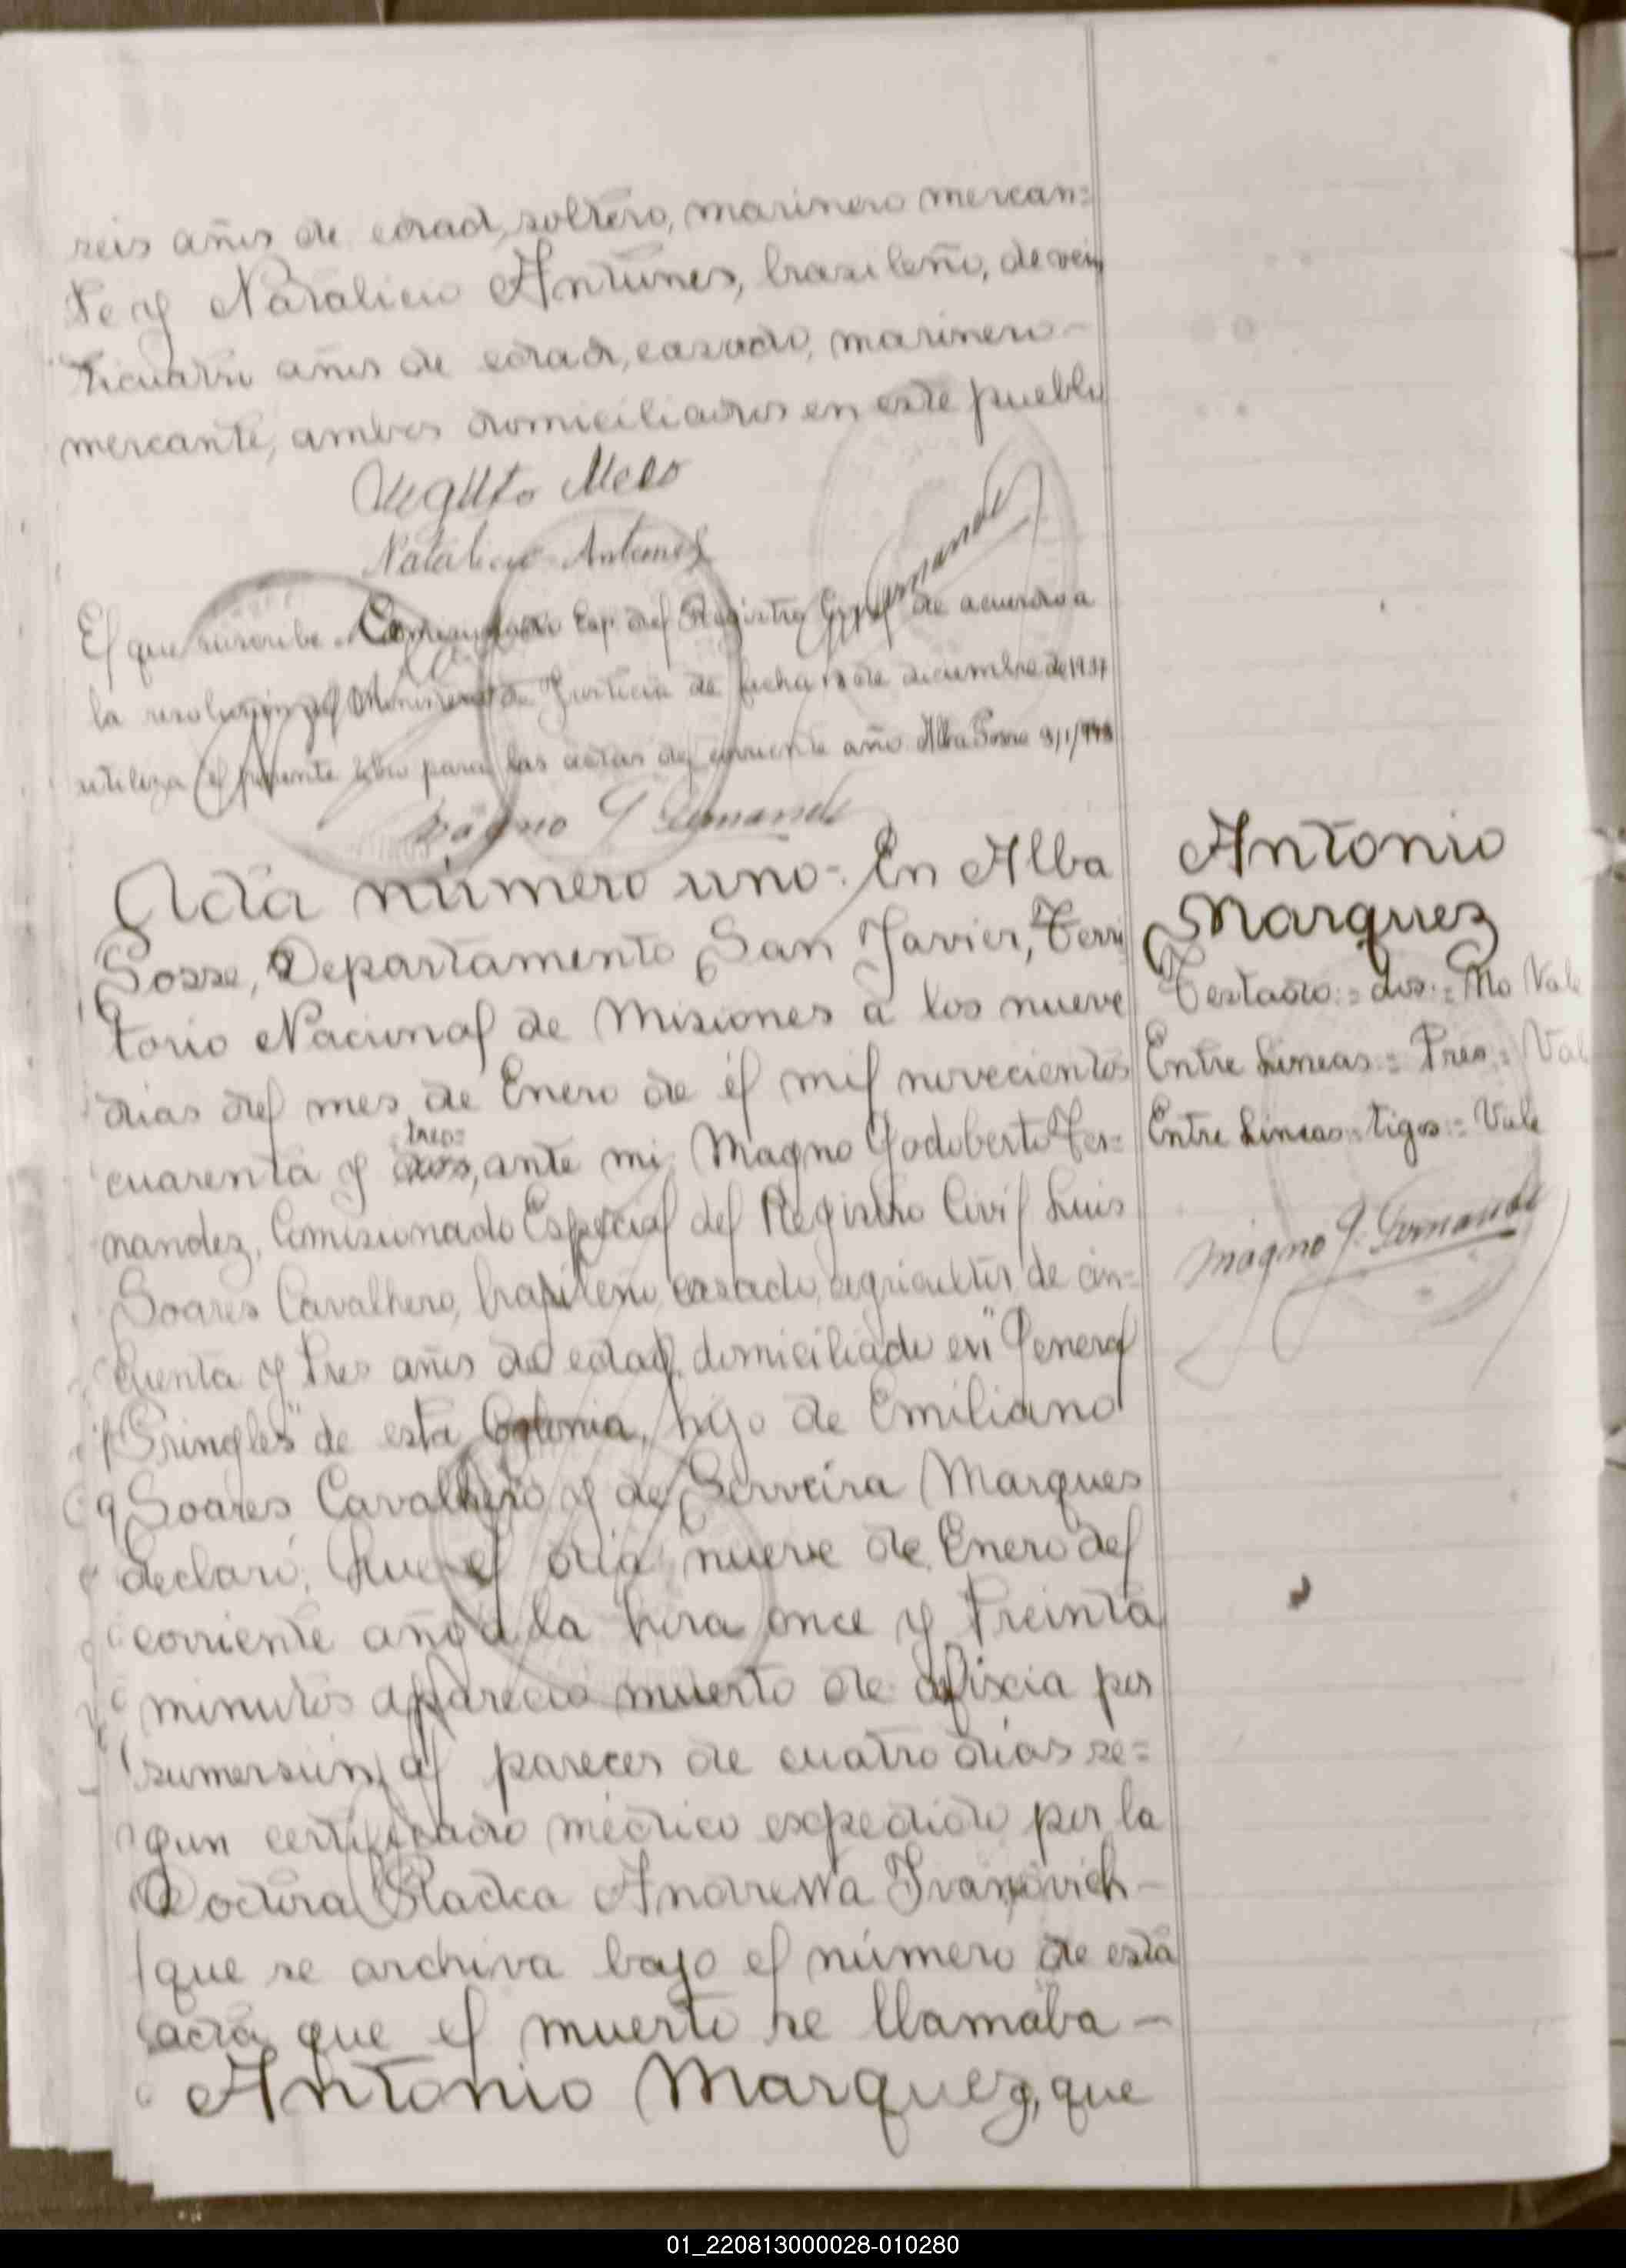 seis años de edad, soltero, marinero mercan=
te y Natalicio Antunes, brasileño, de vein
ticuatro años de edad, casado, marinero-
mercante, ambos domiciliados en este pueblo
Melo
Natalicio Antunes
El que suscribe Comisionado Esp. del Registro Civil de acuerdo a
la resolución del Ministerio de Justicia de fecha de diciembre de 1937
utiliza el presente libro para las actas del corriente año. Alba Posse 3/1/943
Magno G Fernande
Acta número uno:- En Alba
Posse, Departamento San Javier, Terri
torio Nacional de Misiones a los nueve
dias del mes de Enero de él mil novecientos
tres=
cuarenta y dos, ante mi, Magno Godoberto Fer=
nandez, Comisionado Especial del Registro Civil Luis
Soares Cavalhero, brasileño, casado, agricultor, de cin=
cuenta y tres años de edad, domiciliado en "General
Pringles" de esta Colonia, hijo de Emiliano
Soares Cavalhero y de Marques
declaró, Que el dia nueve de Enero del
corriente año a la hora once y treinta
minutos apareció muerto de afixcia por
sumersión, al parecer de cuatro dias se=
gun certificado médico expedido por la
Doctora Radca Ivanovich-
que se archiva bajo el número de esta
acta, que el muerto se llamaba -
Antonio Marquez, que
Antonio
Marquez
Testado:= dos:= No Vale
Entre Lineas:= Tres= Val
Entre Lineas:= tigos:= Vale
Magno G. Fernande
01_220813000028-010280